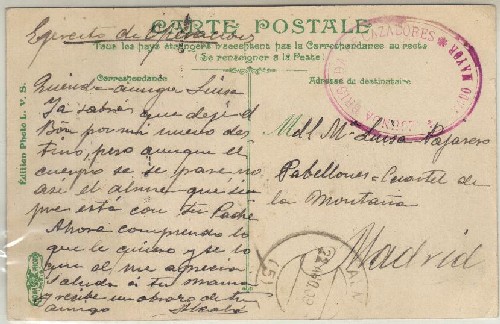 Ejército de Operaciones
CARTE POSTALE
Tous les pays étrangers n'acceptent pas la Correspondance au recto
(Se renseigner à la Poste)
Correspondance
Querida amiga Luisa
Ya sabrás que dejé el
Bón por mi nuevo des
tino, pero aunque el
cuerpo se separe no
así el alma que siem
pre está con tu Padre
Ahora comprendo lo
que le quiero y se lo
que él me aprecia
Saluda a tu mamá
y recibe un abrazo de tu
amigo
Adresse du destinataire
Mdll Mª Luisa
Pabellones = Cuartel de
la Montaña
Madrid
Edition Photo L. V. S.
CAZADORES
MAYOR